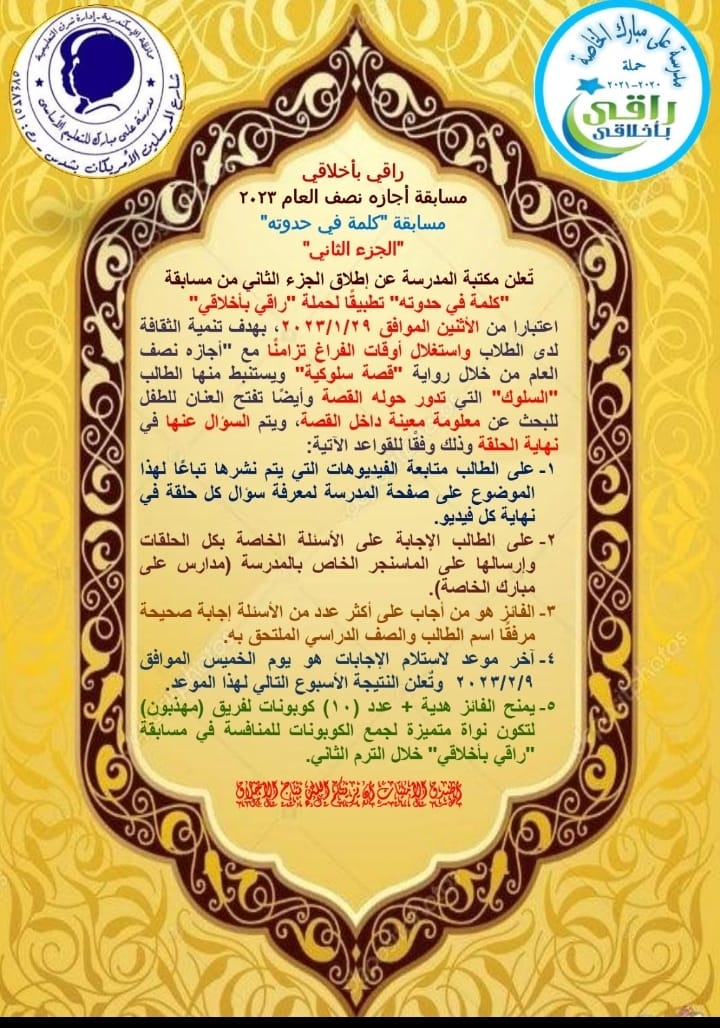 محافظة الإسكندرية - إدارة شرق التعليمية
مدرسة على مبارك للتعليم الأساسى
مدرسة على مبارك الخاصة
حملة
٢٠٢٠-٢٠٢١
راقي
بأخلاقى
راقي بأخلاقي
مسابقة أجازه نصف العام ٢٠٢٣
مسابقة "كلمة في حدوته"
"الجزء الثاني"
تُعلن مكتبة المدرسة عن إطلاق الجزء الثاني من مسابقة
"كلمة في حدوته" تطبيقًا لحملة "راقي بأخلاقي"
اعتبارا من الأثنين الموافق ٢٠٢٣/١/٢٩، بهدف تنمية الثقافة
لدى الطلاب واستغلال أوقات الفراغ تزامنًا مع "أجازه نصف
العام من خلال رواية "قصة سلوكية" ويستنبط منها الطالب
"السلوك" التي تدور حوله القصة وأيضًا تفتح العنان للطفل
للبحث عن معلومة معينة داخل القصة، ويتم السؤال عنها في
نهاية الحلقة وذلك وفقًا للقواعد الآتية:
١- على الطالب متابعة الفيديوهات التي يتم نشرها تباعًا لهذا
الموضوع على صفحة المدرسة لمعرفة سؤال كل حلقة في
نهاية كل فيديو.
٢- على الطالب الإجابة على الأسئلة الخاصة بكل الحلقات
وإرسالها على الماسنجر الخاص بالمدرسة (مدارس على
مبارك الخاصة).
٣- الفائز هو من أجاب على أكثر عدد من الأسئلة إجابة صحيحة
مرفقًا اسم الطالب والصف الدراسي الملتحق به.
٤- آخر موعد لاستلام الإجابات هو يوم الخميس الموافق
٢٠٢٣/٢/٩ وتُعلن النتيجة الأسبوع التالي لهذا الموعد.
٥- يمنح الفائز هدية + عدد (١٠) كوبونات لفريق (مهذبون)
لتكون نواة متميزة لجمع الكوبونات للمنافسة في مسابقة
"راقي بأخلاقي" خلال الترم الثاني.